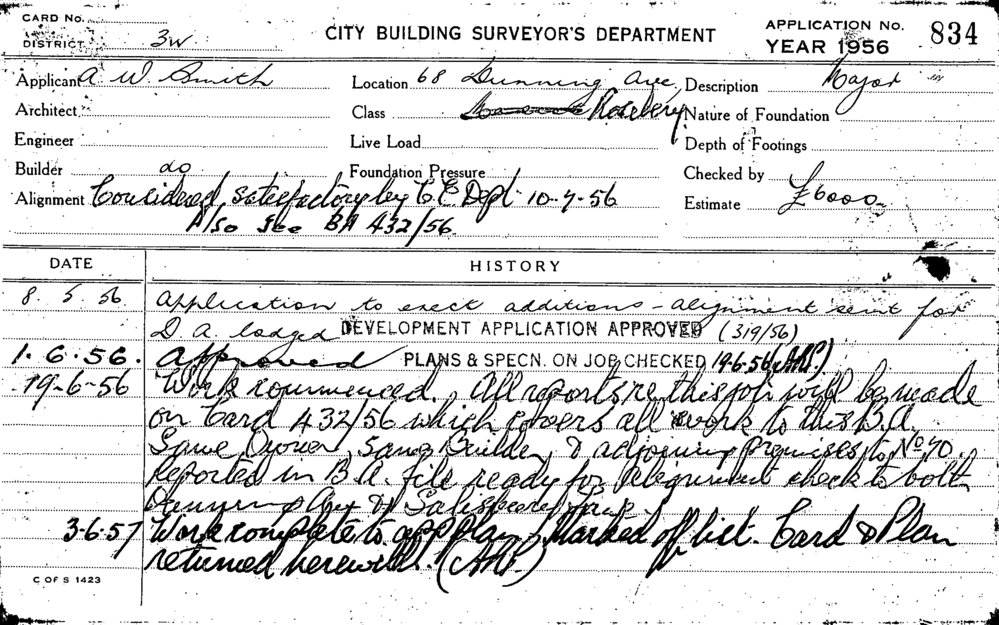 CARD No.
CITY BUILDING SURVEYOR'S DEPARTMENT
APPLICATION No. 834
DISTRICT 3W
YEAR 1956
Applicant A W Smith Location 68 Dunning Ave Description Major
Architect Class Rosebery Nature of Foundation
Engineer Live Load Depth of Footings
Builder do Foundation Pressure Checked by
Alignment Considered satisfactory by C.E Dept 10-7-56 Estimate £6000
Also See BA 432/56
DATE HISTORY
8. 5. 56 Application to erect additions - alignment sent for
D A. lodged DEVELOPMENT APPLICATION APPROVED (319/56)
1. 6. 56. Approved PLANS & SPECN. ON JOB CHECKED 19.6.56
19-6-56 Work commenced. All reports re this job will be made
on Card 432/56 which covers all work to this B.A.
Same Owner, Same Builder, & adjoining premises to No 70.
reported in B.A. file ready for alignment check to both
Dunning Ave &
3-6-57 Work complete to app plan. Marked off list. Card & Plan
returned herewith.
C OF S 1423